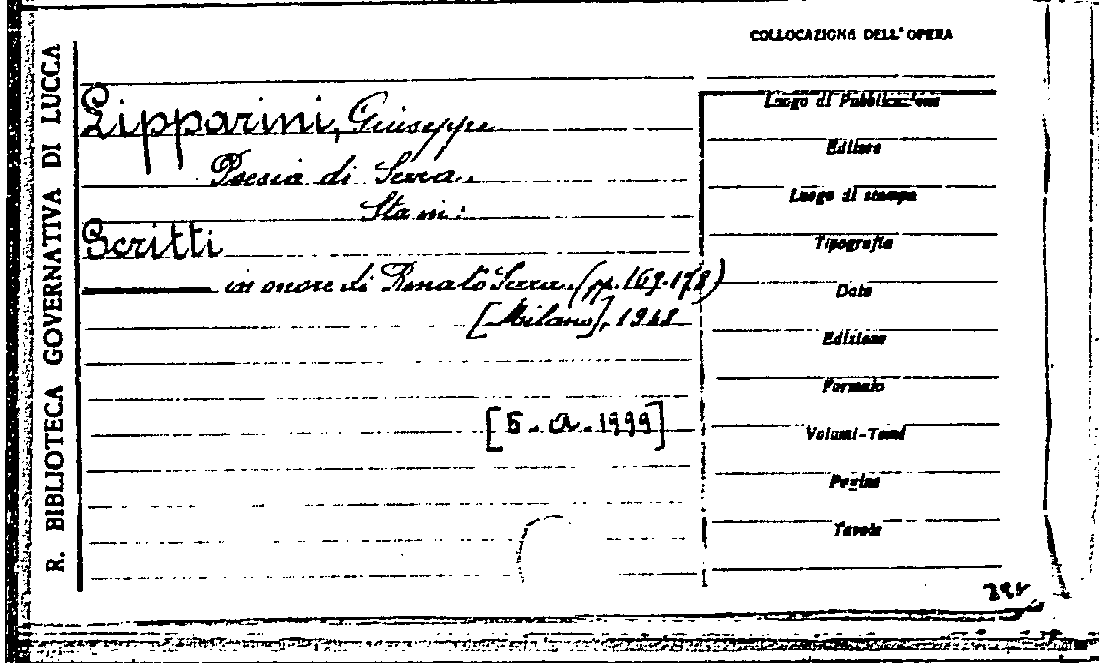 R. BIBLIOTECA GOVERNATIVA DI LUCCA
COLLOCAZIONE DELL'OPERA
Lipparini, Giuseppe
Poesia di Serra.
Sta in:
Scritti
in onore di Renato Serra. (pp. 169-178)
[Milano], 1948
[5-a-1999]
Luogo di Pubblicazione
Editore
Luogo di stampa
Tipografia
Data
Edizione
Formato
Volumi-Tomi
Pagine
Tavole